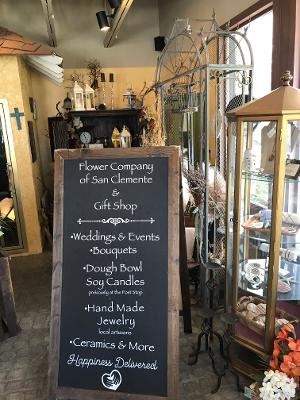 Flower Company
of San Clemente
&
Gift Shop
•Weddings & Events
•Bouquets
•Dough Bowl
Soy Candles
previously at the Post Stop
•Hand Made
Jewelry
local artisans
•Ceramics & More
Happiness Delivered